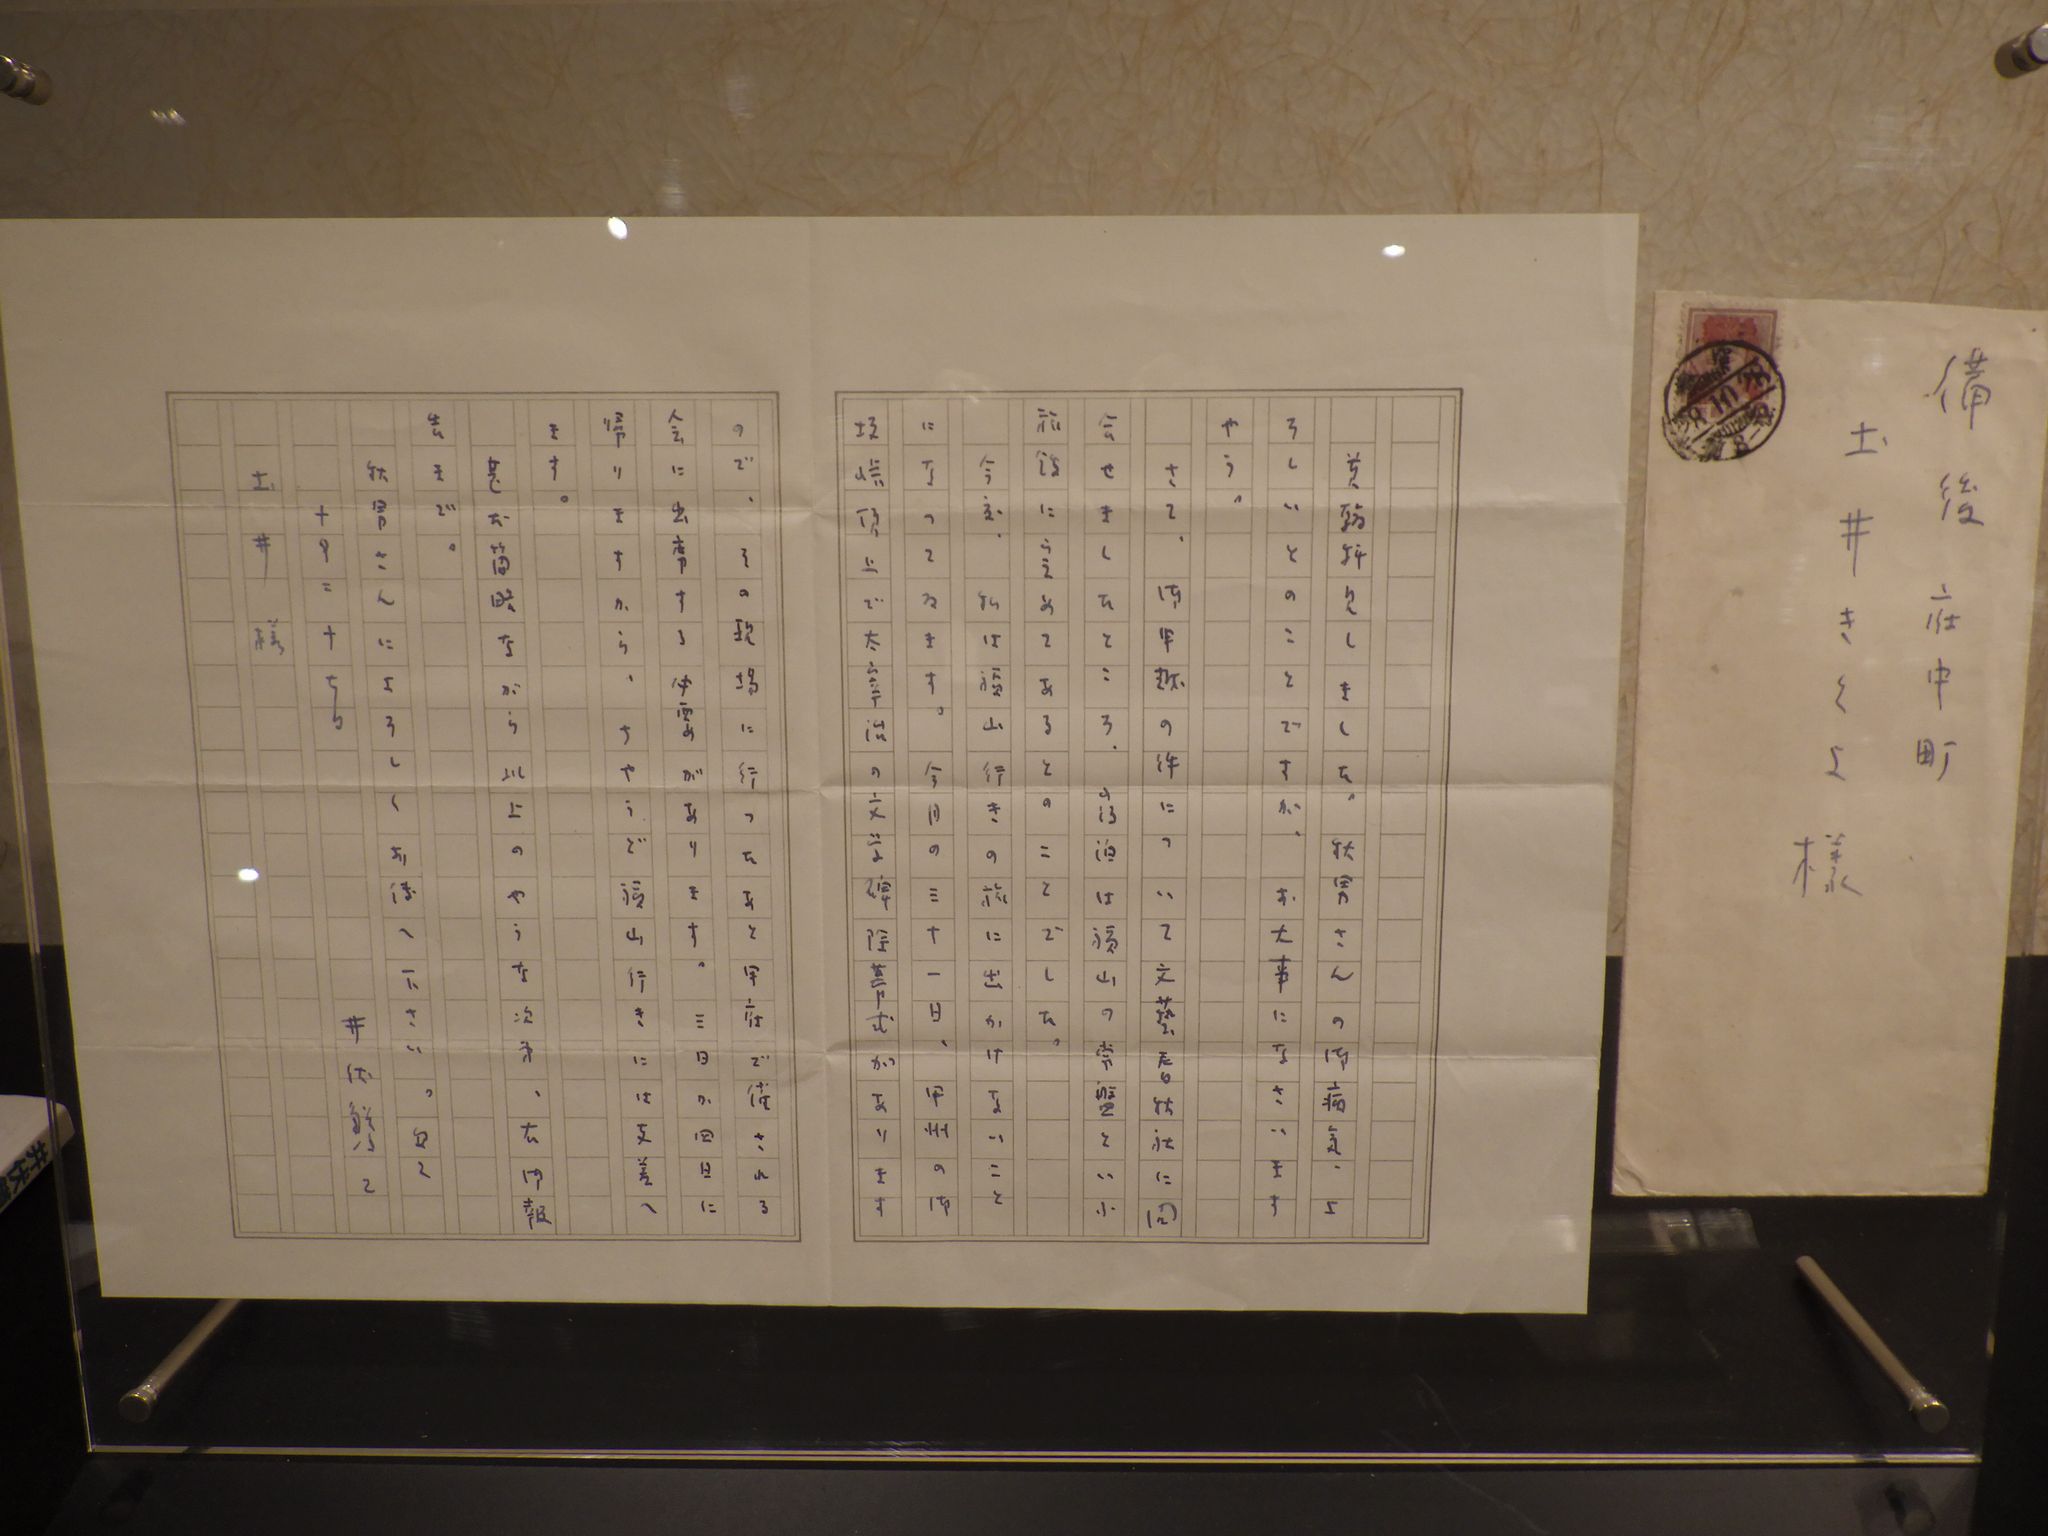 備後府中町
土井きくよ様
貴翰拝見しました。秋男さんの御病気、よ
ろしいとのことですが、お大事になさいます
やう。
さて、御申越の件について文藝春秋社に問
合せましたところ、宿泊は福山の常盤といふ
旅館に定めてあるとのことでした。
今度、私は福山行きの旅に出かけないこと
になつてゐます。今月の三十一日、甲州の御
坂峠頂上で太宰治の文学碑除幕式があります
ので、その現場に行つたあと甲府で催される
会に出席する必要があります。三日か四日に
帰りますから、ちやうど福山行きには支差へ
ます。
甚だ簡略ながら以上のやうな次第、右御報
告まで。
秋男さんによろしくお傳へ下さい。匆々
十月二十七日
井伏鱒二
土井様